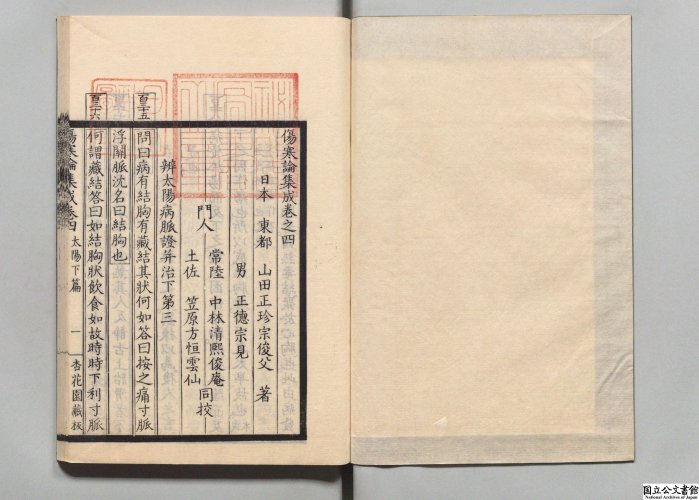 傷寒論集成卷之四
日本 東都 山田正珍宗俊父 著
男 正德宗見
門人 常陸 中林清熙俊庵
土佐 笠原方恒雲仙 同挍
辨太陽病脈證并治下第三
百三十五 問曰病有結胸有藏結其狀何如答曰按之痛寸脈
浮關脈沈名曰結胸也
百三十六 何謂藏結答曰如結胸狀飲食如故時時下利寸脈
傷寒論集成卷四 太陽下篇 一 杏花園藏板
国立公文書館
National Archives of Japan